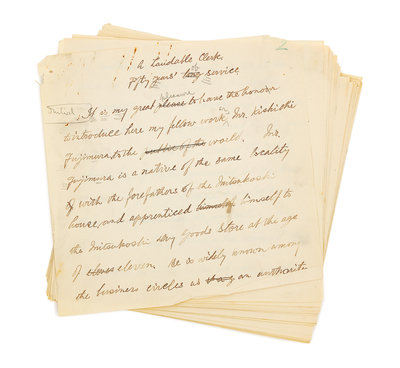 2
A Laudable Clerk,
of
fifty years' long service.
pleasure
Indent It is my great please to have the honour
er
introduce here my fellow work, Mr. Kishichi
Fujimura, to the public of the world. Mr.
Fujimura is a native of the same locality
& with the forefathers of the Mitsukoshi
house, and apprenticed himself himself to
the Mitsukoshi Dry Goods Store at the age
of eleven. He is widely known among
the business circles as an authority